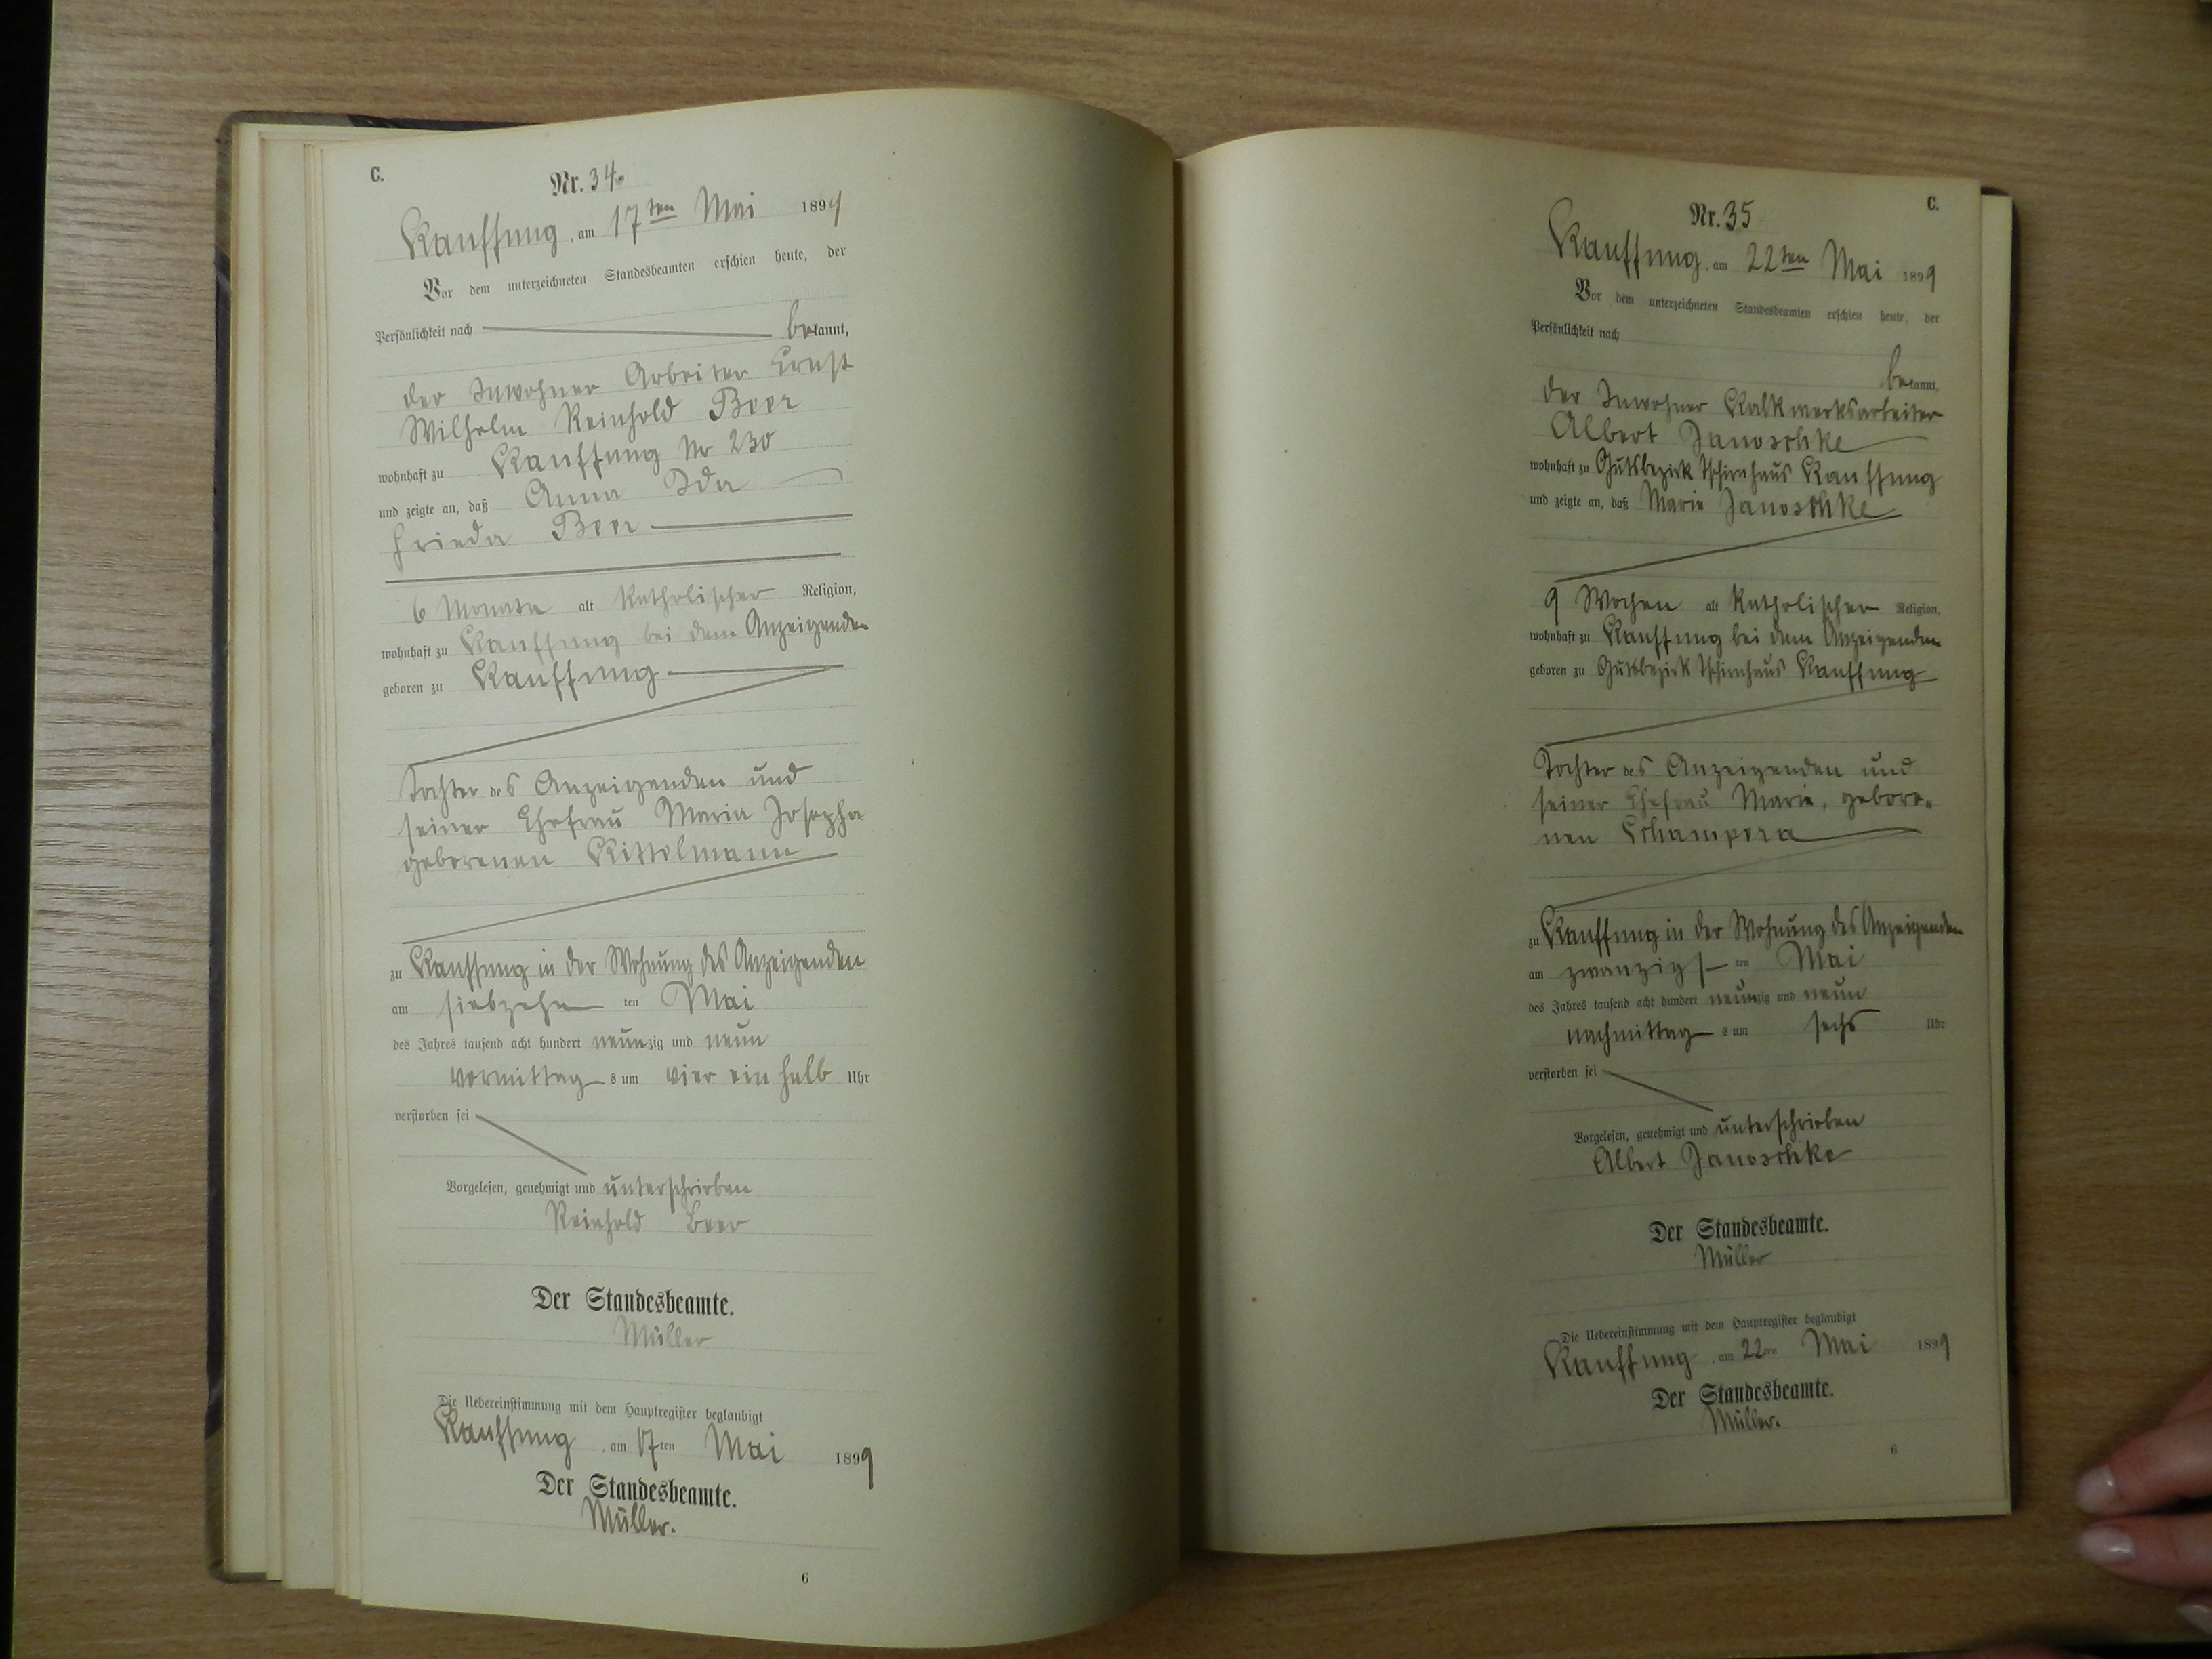 C.
Nr. 34.
Kauffung, am 17ten Mai 1899
Vor dem unterzeichneten Standesbeamten erschien heute, der
Persönlichkeit nach bekannt,
der Inwohner Arbeiter Ernst
Wilhelm Reinhold Beer
wohnhaft zu Kauffung Nr 230
und zeigte an, daß Anna Ida
Frieda Beer
6 Monate alt katholischer Religion,
wohnhaft zu Kauffung bei dem Anzeigenden
geboren zu Kauffung
Tochter des Anzeigenden und
seiner Ehefrau Maria Josepha
geborenen Kittelmann
zu Kauffung in der Wohnung des Anzeigenden
am siebzehn ten Mai
des Jahres tausend acht hundert neunzig und neun
vormittag s um vier ein halb Uhr
verstorben sei
Vorgelesen, genehmigt und unterschrieben
Reinhold Beer
Der Standesbeamte.
Müller
Die Uebereinstimmung mit dem Hauptregister beglaubigt
Kauffung, am 17ten Mai 1899
Der Standesbeamte.
Müller.
6
C.
Nr. 35
Kauffung, am 22ten Mai 1899
Vor dem unterzeichneten Standesbeamten erschien heute, der
Persönlichkeit nach
bekannt,
der Inwohner Kalkwerksarbeiter
Albert Janoschke
wohnhaft zu Gutsbezirk Tschirnhaus Kauffung
und zeigte an, daß Marie Janoschke
9 Wochen alt katholischer Religion,
wohnhaft zu Kauffung bei dem Anzeigenden
geboren zu Gutsbezirk Tschirnhaus Kauffung
Tochter des Anzeigenden und
seiner Ehefrau Marie, gebore-
nen Schampera
zu Kauffung in der Wohnung des Anzeigenden
am zwanzigs ten Mai
des Jahres tausend acht hundert neunzig und neun
nachmittag s um sechs Uhr
verstorben sei
Vorgelesen, genehmigt und unterschrieben
Albert Janoschke
Der Standesbeamte.
Müller
Die Uebereinstimmung mit dem Hauptregister beglaubigt
Kauffung, am 22ten Mai 1899
Der Standesbeamte.
Müller.
6